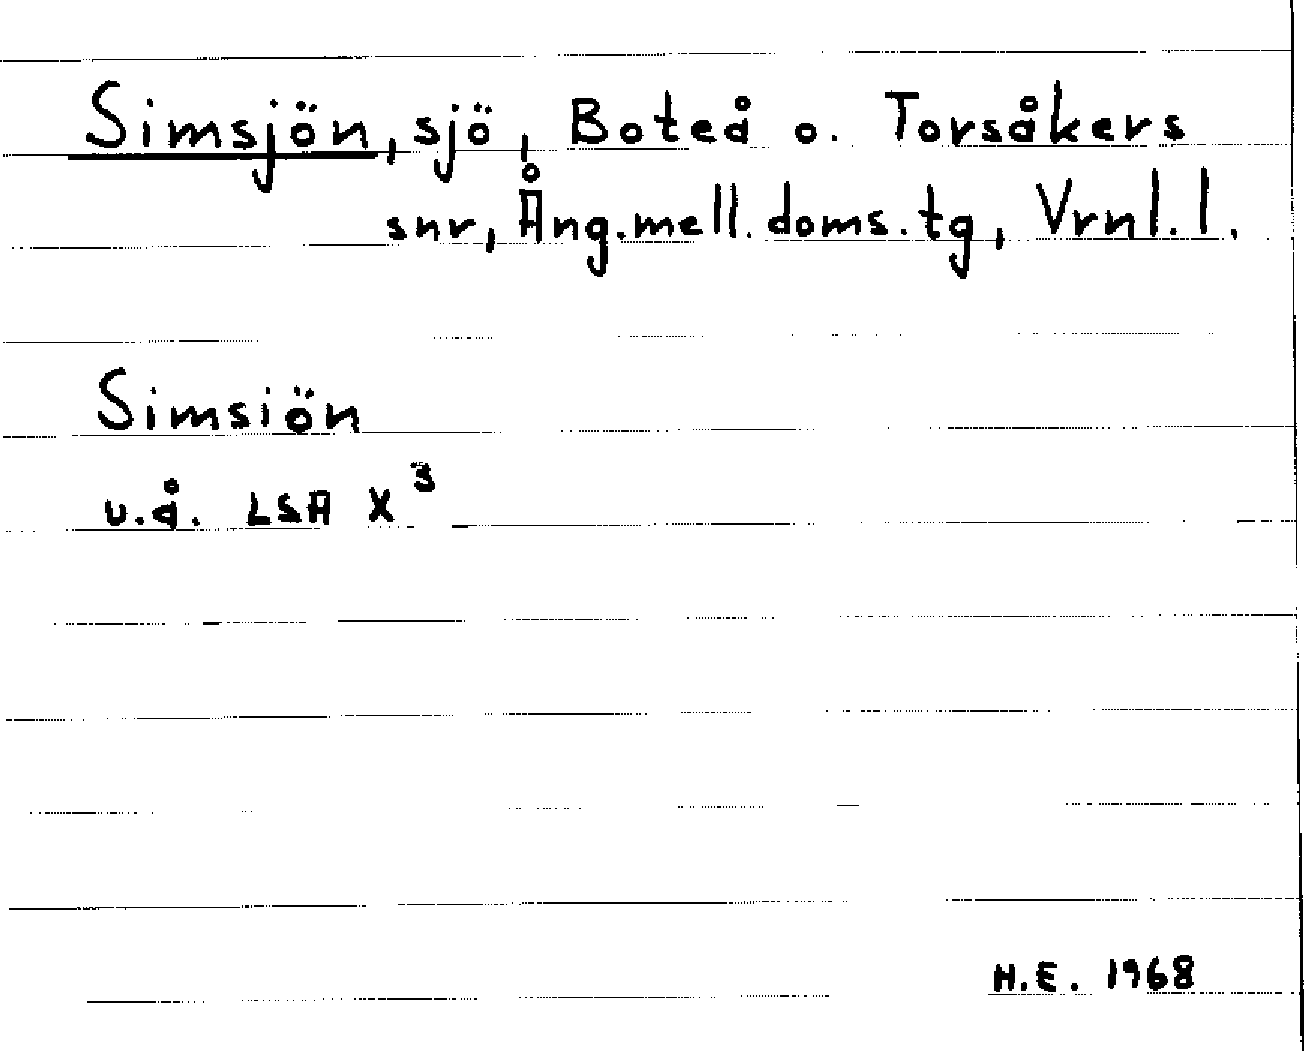 Simsjön, sjö, Boteå o. Torsåkers
snr, Ång.mell.doms.tg, Vrnl.l.
Simsiön
u.å. LSA X³
H.E. 1968